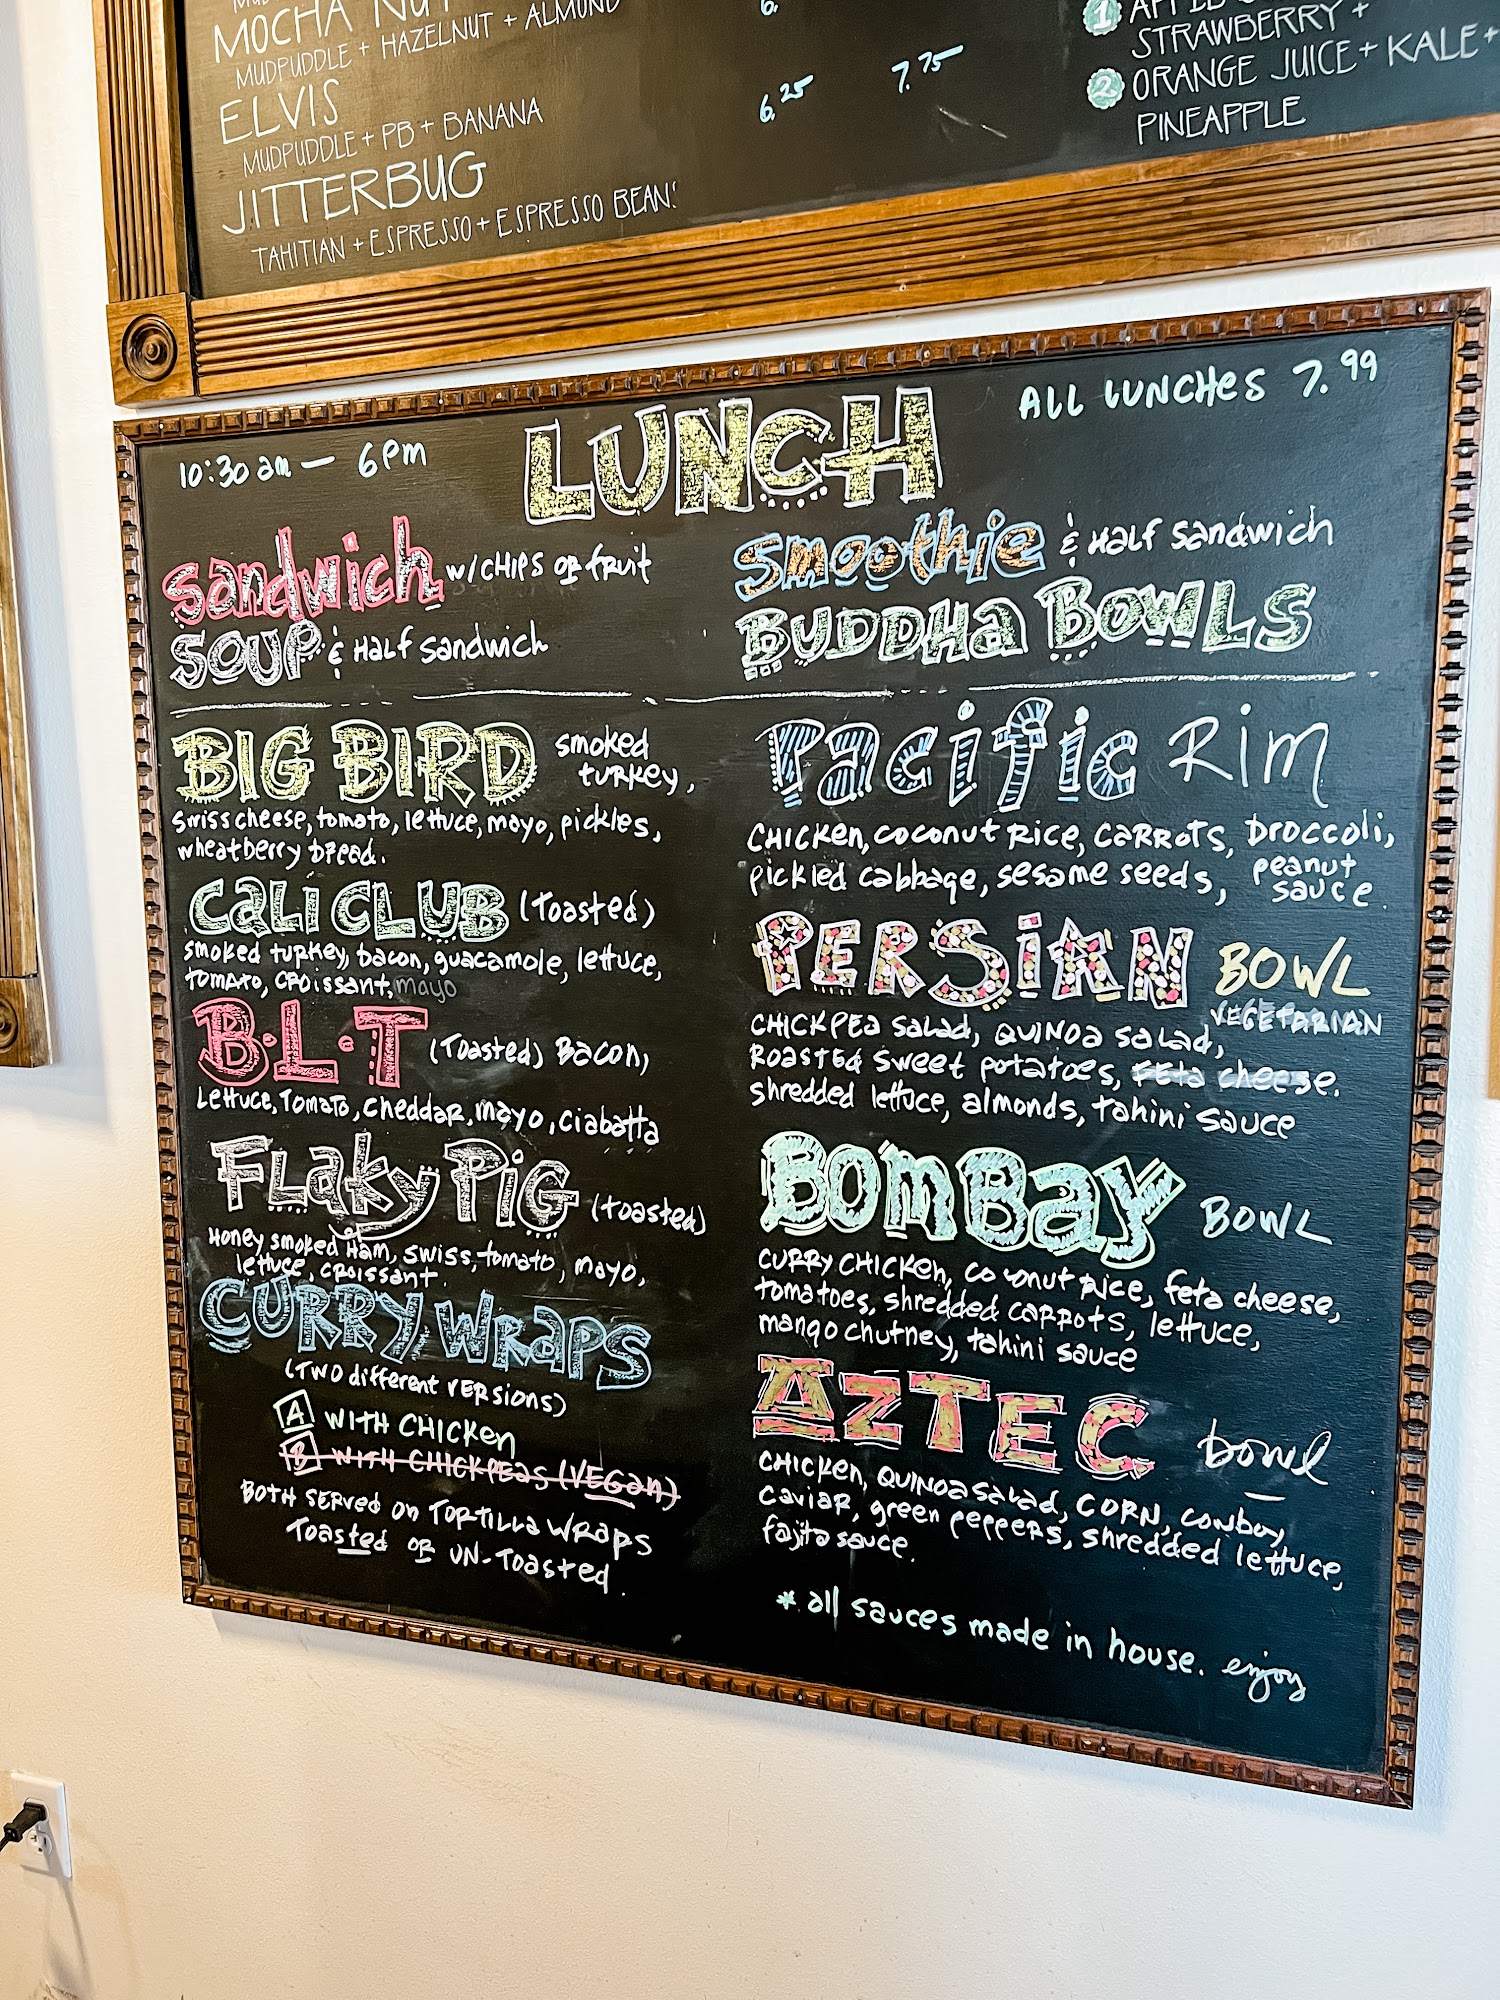 MOCHA NUT
MUDPUDDLE + HAZELNUT + ALMOND
6.
ELVIS
MUDPUDDLE + PB + BANANA
6.25 7.75
JITTERBUG
TAHITIAN + ESPRESSO + ESPRESSO BEANS
1
STRAWBERRY +
2 ORANGE JUICE + KALE +
PINEAPPLE
LUNCH
10:30 am – 6pm
ALL LUNCHES 7.99
Sandwich w/CHIPS OR fruit
SOUP & Half Sandwich
Smoothie & Half Sandwich
BUDDHA BOWLS
BIG BIRD smoked
turkey,
Swiss cheese, tomato, lettuce, mayo, pickles,
wheatberry bread.
CALI CLUB (Toasted)
smoked turkey, bacon, guacamole, lettuce,
tomato, croissant, mayo
B.L.T (Toasted) Bacon,
Lettuce, Tomato, Cheddar, mayo, ciabatta
Flaky Pig (toasted)
Honey smoked Ham, swiss, tomato, mayo,
lettuce, croissant.
CURRY WRAPS
(TWO different VERSIONS)
A WITH CHICKEN
B WITH CHICKPEAS (VEGAN)
BOTH SERVED ON TORTILLA WRAPS
Toasted OR UN-Toasted.
Pacific Rim
CHICKEN, coconut Rice, CARROTS, broccoli,
pickled cabbage, sesame seeds, peanut
sauce.
PERSIAN BOWL
VEGETARIAN
CHICKPEA SALAD, QUINOA SALAD,
ROASTED SWEET POTATOES, FETA cheese.
shredded lettuce, almonds, tahini sauce
BOMBAY BOWL
CURRY CHICKEN, coconut rice, feta cheese,
tomatoes, shredded carrots, lettuce,
mango chutney, tahini sauce
AZTEC bowl
CHICKEN, QUINOA SALAD, CORN, cowboy
caviar, green peppers, shredded lettuce,
fajita sauce.
* all sauces made in house. enjoy